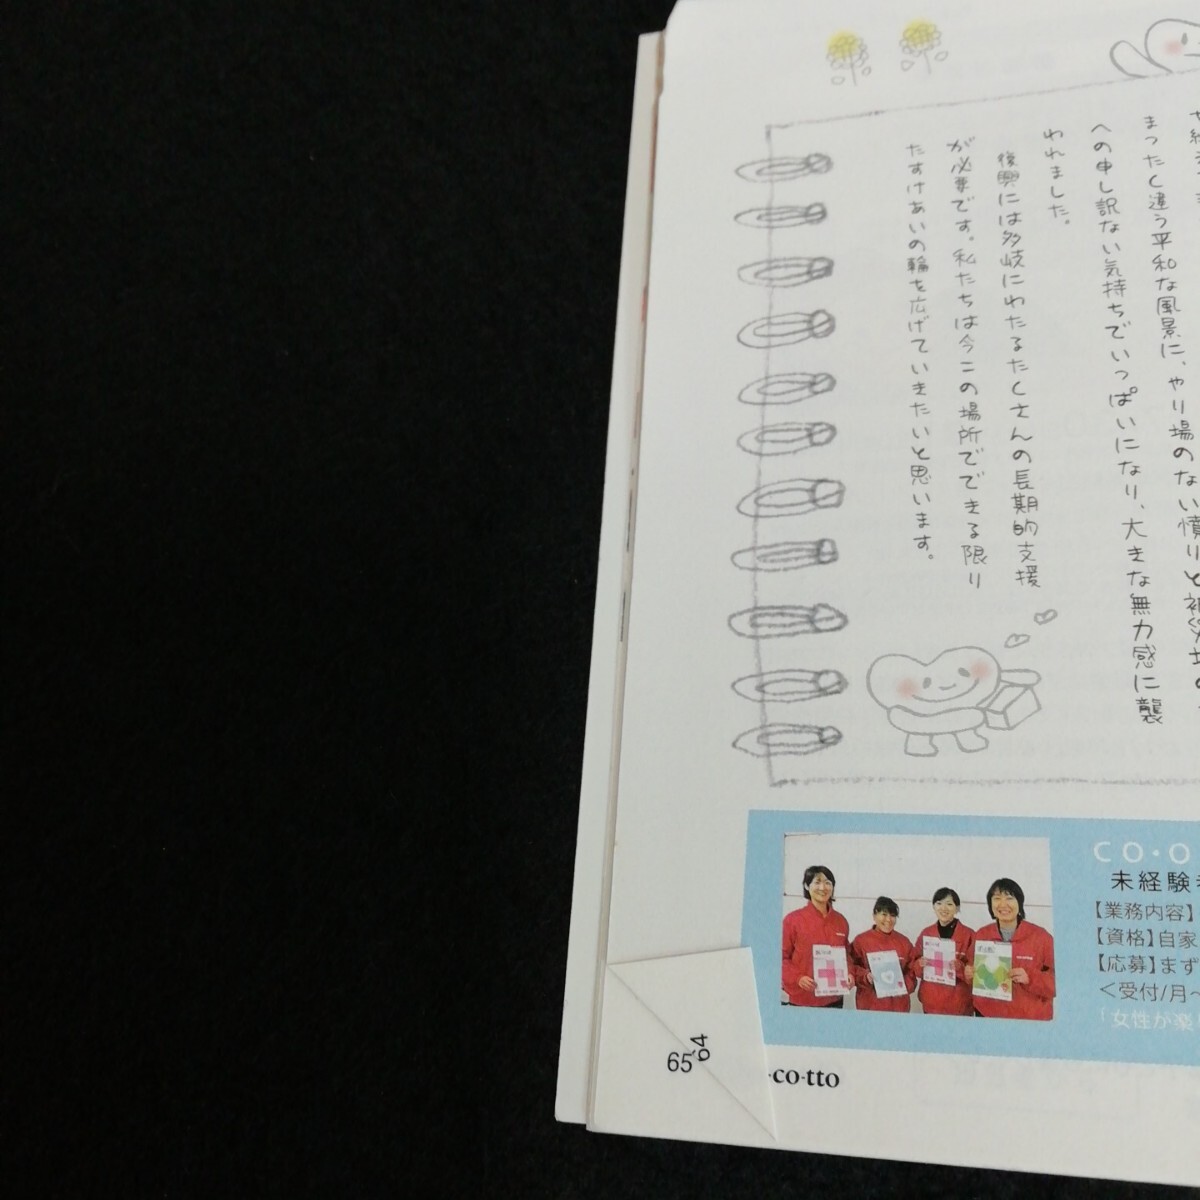 まったく違う平和な風景に、やり場のない憤りと被災地の
への申し訳ない気持ちでいっぱいになり、大きな無力感に襲
われました。
復興には多岐にわたるたくさんの長期的支援
が必要です。私たちは今この場所でできる限り
たすけあいの輪を広げていきたいと思います。
CO・O
未経験者
【業務内容】
【資格】自家
【応募】まず
<受付/月~
「女性が楽
65
64
・co・tto